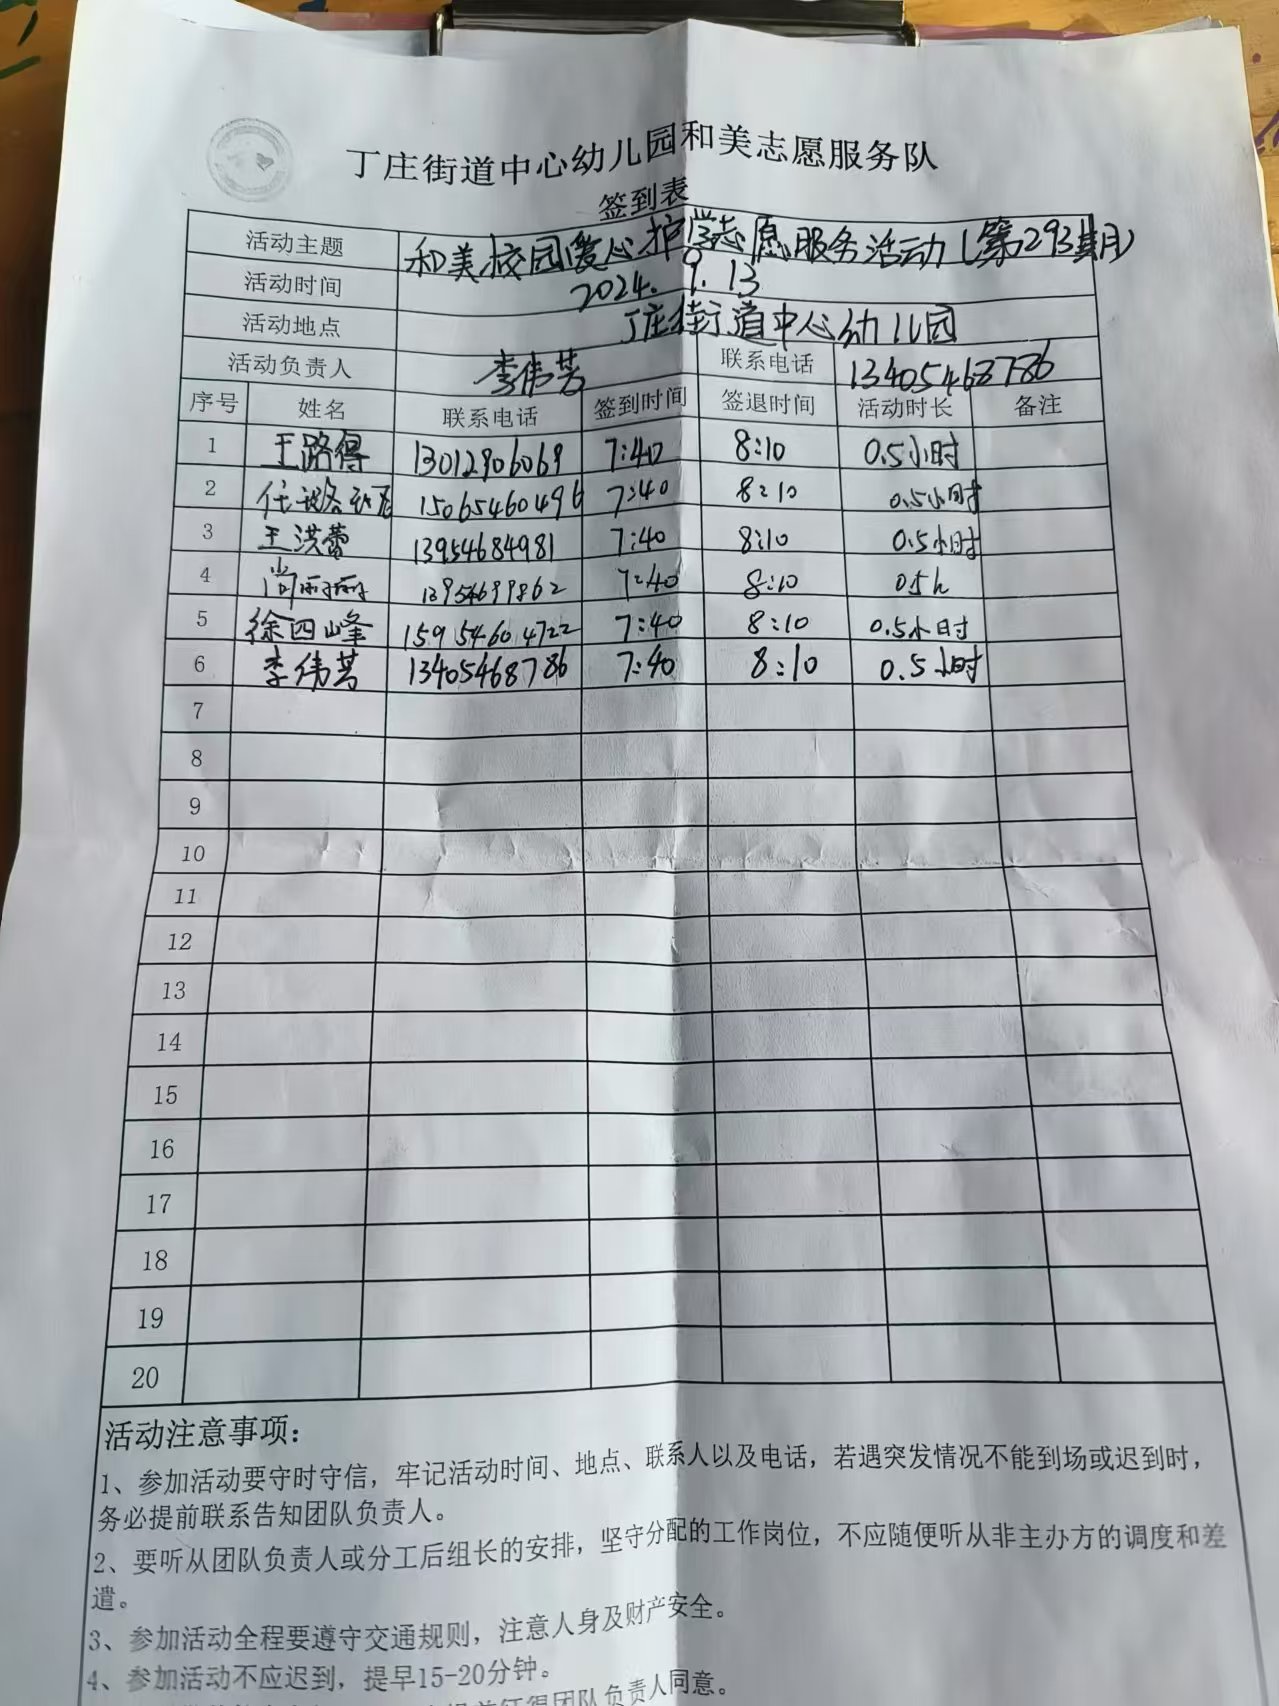 丁庄街道中心幼儿园和美志愿服务队
签到表
活动主题 和美校园爱心护学志愿服务活动(第293期)
活动时间 2024.9.13
活动地点 丁庄街道中心幼儿园
活动负责人 李伟芳 联系电话 13405468786
序号 姓名 联系电话 签到时间 签退时间 活动时长 备注
1 王路得 13012906069 7:40 8:10 0.5小时
2 15065460496 7:40 8:10 0.5小时
3 王洪蕾 13954684981 7:40 8:10 0.5小时
4 尚丽丽 13954699862 7:40 8:10 0.5h
5 徐四峰 159154604722 7:40 8:10 0.5小时
6 李伟芳 13405468786 7:40 8:10 0.5小时
7
8
9
10
11
12
13
14
15
16
17
18
19
20
活动注意事项:
1、参加活动要守时守信，牢记活动时间、地点、联系人以及电话，若遇突发情况不能到场或迟到时，
务必提前联系告知团队负责人。
2、要听从团队负责人或分工后组长的安排，坚守分配的工作岗位，不应随便听从非主办方的调度和差
遣。
3、参加活动全程要遵守交通规则，注意人身及财产安全。
4、参加活动不应迟到，提早15-20分钟。
团队负责人同意。